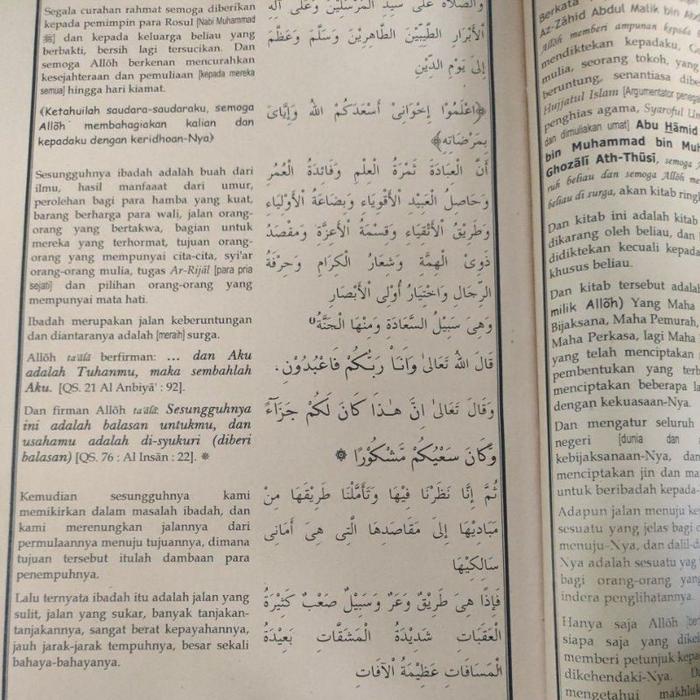 Segala curahan rahmat semoga diberikan
kepada pemimpin para Rosul [Nabi Muhammad
ﷺ] dan kepada keluarga beliau yang
berbakti, bersih lagi tersucikan. Dan
semoga Allōh berkenan mencurahkan
kesejahteraan dan pemuliaan [kepada mereka
semua] hingga hari kiamat.
(Ketahuilah saudara-saudaraku, semoga
Allōh membahagiakan kalian dan
kepadaku dengan keridhoan-Nya)
Sesungguhnya ibadah adalah buah dari
ilmu, hasil manfaaat dari umur,
perolehan bagi para hamba yang kuat,
barang berharga para wali, jalan orang-
orang yang bertakwa, bagian untuk
mereka yang terhormat, tujuan orang-
orang yang mempunyai cita-cita, syi'ar
orang-orang mulia, tugas Ar-Rijāl [para pria
sejati] dan pilihan orang-orang yang
mempunyai mata hati.
Ibadah merupakan jalan keberuntungan
dan diantaranya adalah [meraih] surga.
Allōh ta'ālā berfirman: ... dan Aku
adalah Tuhanmu, maka sembahlah
Aku. [QS. 21 Al Anbiyā' : 92].
Dan firman Allōh ta'ālā: Sesungguhnya
ini adalah balasan untukmu, dan
usahamu adalah di-syukuri (diberi
balasan) [QS. 76 : Al Insān : 22]. ❋
Kemudian sesungguhnya kami
memikirkan dalam masalah ibadah, dan
kami merenungkan jalannya dari
permulaannya menuju tujuannya, dimana
tujuan tersebut itulah dambaan para
penempuhnya.
Lalu ternyata ibadah itu adalah jalan yang
sulit, jalan yang sukar, banyak tanjakan-
tanjakannya, sangat berat kepayahannya,
jauh jarak-jarak tempuhnya, besar sekali
bahaya-bahayanya.
وَالصَّلَاةُ عَلَى سَيِّدِ الْمُرْسَلِيْنَ وَعَلَى اٰلِهِ
الْأَبْرَارِ الطَّيِّبِيْنَ الطَّاهِرِيْنَ وَسَلَّمَ وَعَظَّمَ
إِلَى يَوْمِ الدِّيْنِ
﴿اعْلَمُوْا إِخْوَانِيْ أَسْعَدَكُمُ اللهُ وَإِيَّايَ
بِمَرْضَاتِهِ﴾
أَنَّ الْعِبَادَةَ ثَمْرَةُ الْعِلْمِ وَفَائِدَةُ الْعُمُرِ
وَحَاصِلُ الْعَبِيْدِ الْأَقْوِيَاءِ وَبِضَاعَةُ الْأَوْلِيَاءِ
وَطَرِيْقُ الْأَتْقِيَاءِ وَقِسْمَةُ الْأَعِزَّةِ وَمَقْصَدُ
ذَوِى الْهِمَّةِ وَشِعَارُ الْكِرَامِ وَحِرْفَةُ
الرِّجَالِ وَاخْتِيَارُ أُوْلِى الْأَبْصَارِ
وَهِيَ سَبِيْلُ السَّعَادَةِ وَمِنْهَا الْجَنَّةُ
قَالَ اللهُ تَعَالَى وَاَنَا۠ رَبُّكُمْ فَاعْبُدُوْنِ.
وَقَالَ تَعَالَى اِنَّ هٰذَا كَانَ لَكُمْ جَزَآءً
وَّكَانَ سَعْيُكُمْ مَّشْكُوْرًا ❋
ثُمَّ إِنَّا نَظَرْنَا فِيْهَا وَتَأَمَّلْنَا طَرِيْقَهَا مِنْ
مَبَادِيْهَا إِلَى مَقَاصِدِهَا الَّتِى هِيَ أَمَانِى
سَالِكِيْهَا
فَإِذَا هِيَ طَرِيْقٌ وَعْرٌ وَسَبِيْلٌ صَعْبٌ كَثِيْرَةُ
الْعَقَبَاتِ شَدِيْدَةُ الْمَشَقَّاتِ بَعِيْدَةُ
الْمَسَافَاتِ عَظِيْمَةُ الْآفَاتِ
Berkata
Az-Zāhid Abdul Malik bin
Allōh memberi ampunan kepada
mendiktekan kepadaku,
mulia, seorang tokoh, yang
beruntung, senantiasa
Hujjatul Islam [Argumentator
penghias agama, Syaroful
dan dimuliakan umat] Abu Hāmid
bin Muhammad bin
Ghozālī Ath-Thūsi, semoga
ruh beliau dan semoga Allōh
beliau di surga, akan kitab
Dan kitab ini adalah kitab
dikarang oleh beliau, dan
didiktekan kecuali kepada
khusus beliau.
Dan kitab tersebut adalah
milik Allōh) Yang Maha
Bijaksana, Maha Pemurah,
Maha Perkasa, lagi Maha
yang telah menciptakan
pembentukan yang
menciptakan beberapa
dengan kekuasaan-Nya.
Dan mengatur seluruh
negeri [dunia dan
kebijaksanaan-Nya, dan
menciptakan jin dan
untuk beribadah
Adapun jalan menuju
sesuatu yang jelas bagi
menuju-Nya, dan
Nya adalah sesuatu
bagi orang-orang
indera penglihatannya.
Hanya saja Allōh
siapa saja yang
memberi petunjuk
dikehendaki-Nya.
mengetahui